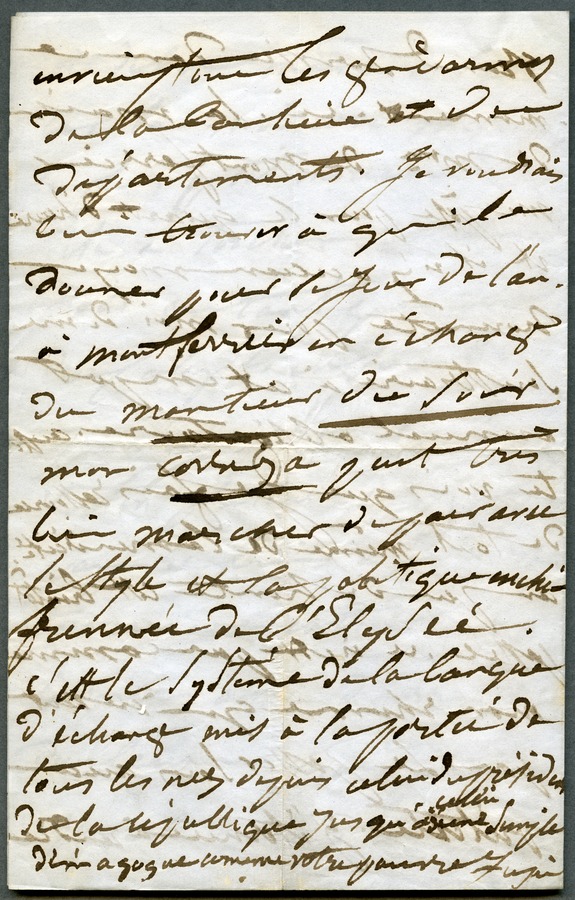 les gendarmes
de la banlieue et des
départements. Je voudrais
bien trouver à qui le
donner pour le Jour de l'an.
à montferrier en échange
du du Soir
mon coryza peut très
bien marcher de pair avec
le Style et la politique enchi-
frennée de l'Elysée.
c'est le Systéme de la langue
d'échange mis à la portée de
tous les nez depuis celui du présiden
de la république jusqu'à celui Simple
démagogue comme votre pauvre